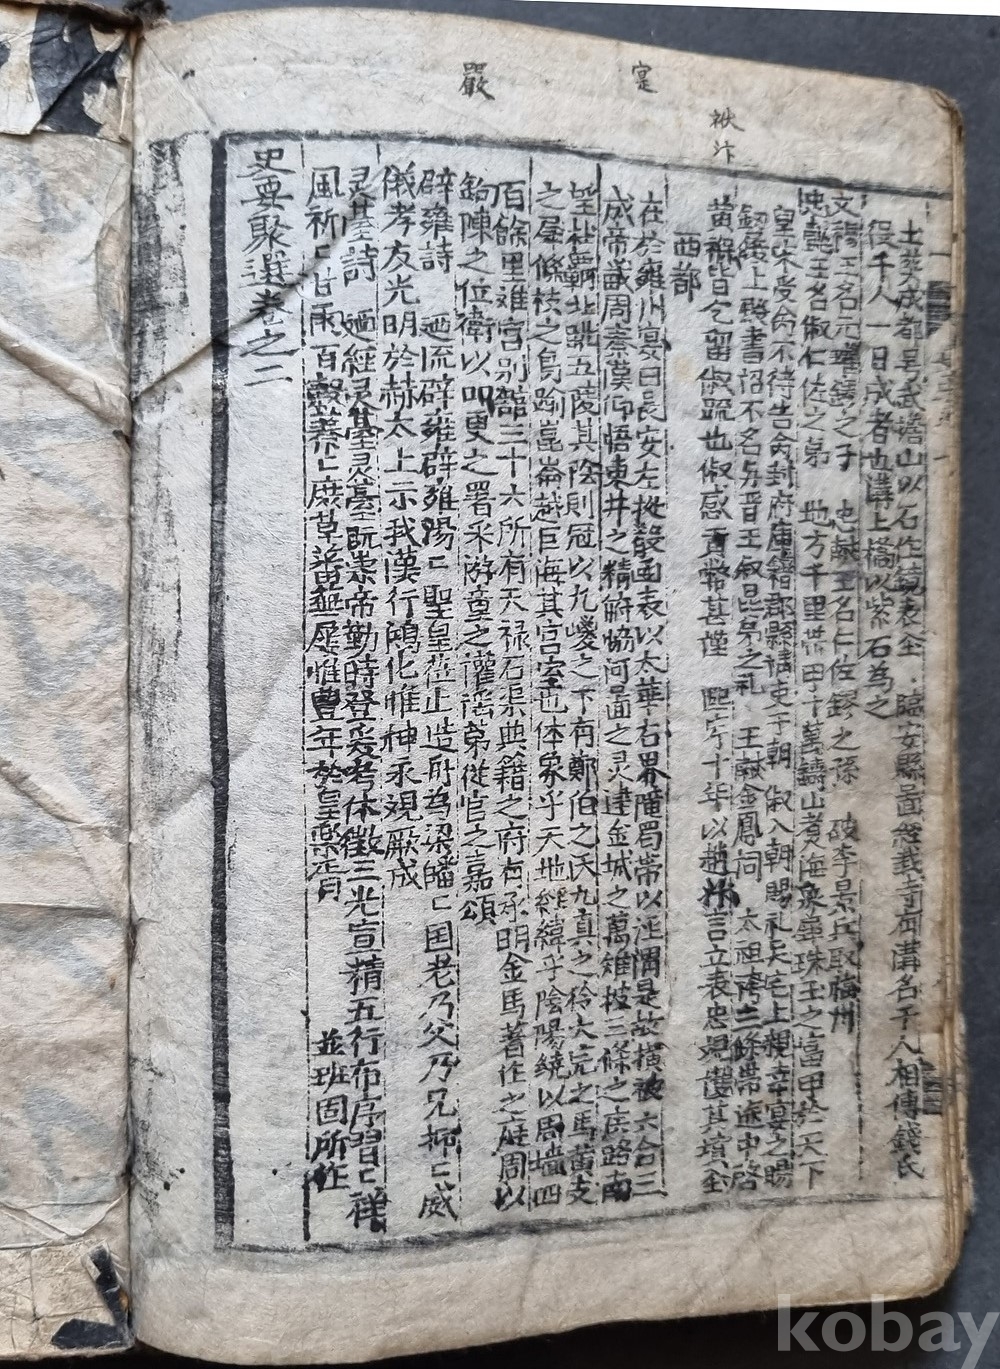 嚴
寔
袟
汴
土英成都呈武擔山以石作鏡表全臨安縣啚經義寺有溝名千人相傳錢氏
役千人一日成者也溝上橋以紫石為之
文穆王名元瓘鏐之子 忠獻王名仁佐鏐之孫 破李景兵取福州
忠懿王名俶仁佐之弟 地方千里世田十萬鑄山煑海象犀珠玉之富甲於天下
皇宋受命不待告命封府庫籍郡縣請吏于朝俶入朝賜礼天宅上親幸宴之賜
釼履上殿書詔不名与晋王叙昆弟之礼 王獻金鳳 太祖 三條帶途中啓
黃 皆乞留俶䟽也俶感 貢幣甚謹 熙宁十年以趙抃言立表忠 其墳全
西都
在於雍州宴曰長安左據殽函表以太華右界 蜀帶以涇渭是故橫被六合三
成帝畿周秦漢仰悟東井之精俯協河啚之灵建金城之萬雉披三條之広路南
望杜霸北眺五陵其陰則冠以九嵕之下有鄭伯之 九真之 大宛之馬黃支
之犀條枝之鳥踰崑崙越巨海其宫室也体象乎天地經緯乎陰陽繞以周墻四
百餘里雉宫别舘三十六所有天禄石渠典籍之府有承明金馬著作之庭周以
鉤陳之位衛以 更之署采游童之讙謡第從官之嘉頌
辟雍詩 廼流辟雍辟雍湯〻聖皇莅止造舟為梁皤〻囯老乃父乃兄抑〻威
儀孝友光明於赫太上示我漢行鴻化惟神永觀厥成
灵䑓詩 廼經灵䑓灵䑓旣崇帝勤時登爰考休徵三光宣精五行布序習〻祥
風祈〻甘雨百穀蓁〻庶草蕃蕪屢惟豊年於皇樂胥 並班固所作
史要聚選卷之二
kobay